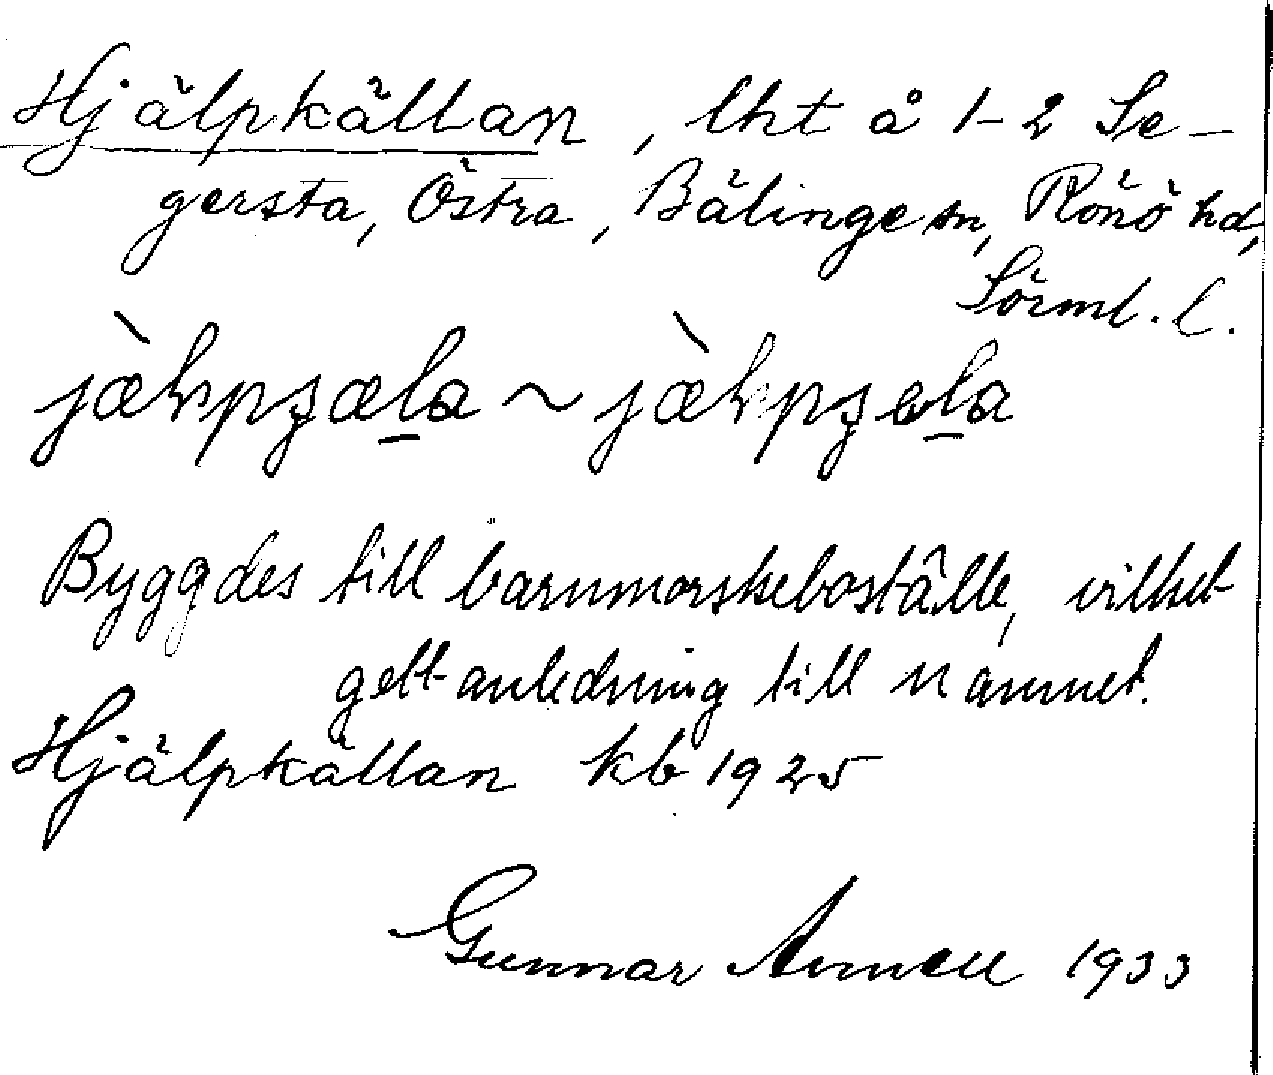 Hjälpkällan, lht å 1-2 Se-
gersta, Östra, Bälinge sn, Rönö hd,
Sörml. l.
Byggdes till barnmorskeboställe, vilket
gett anledning till namnet.
Hjälpkällan kb 1925
Gunnar Annell 1933